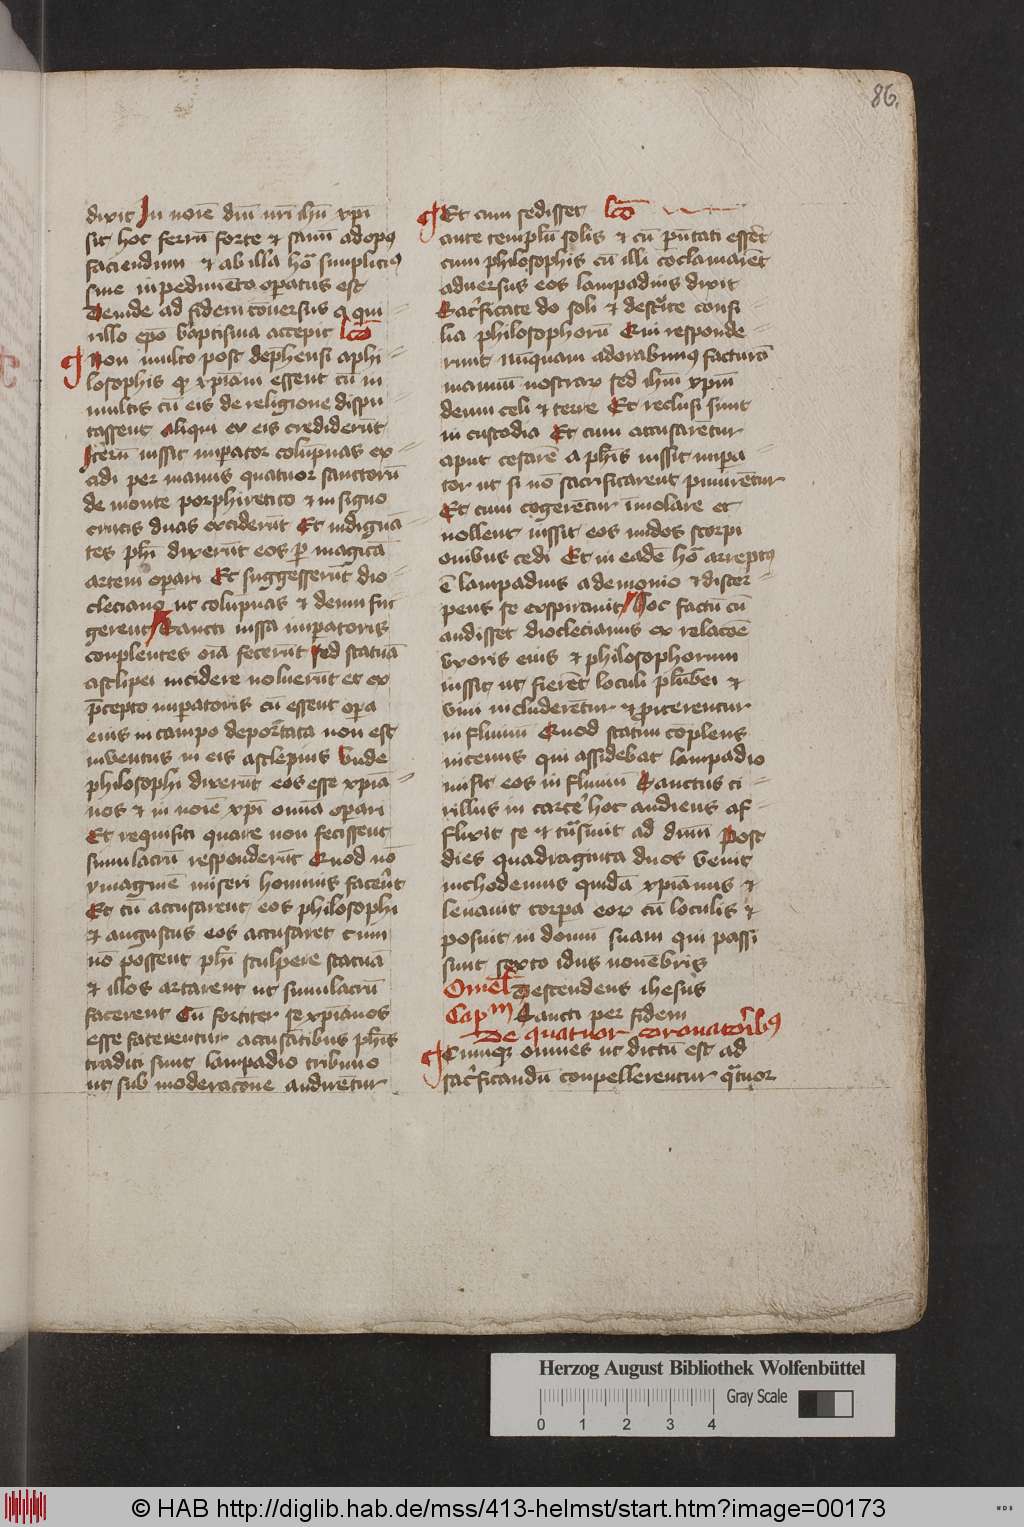 86.
dixit In noīe dn̄i nr̄i ihū xp̄i
sit hoc ferrū forte & sanū ad opꝰ
faciendum & ab illa hō simpliciꝰ
sine inpedimēto opatus est
Deinde ad fidem cōuersus a qui
rillo ep̄o baptisma accepit lc̄o
Non multo post dephensi a phi
losophis qͥ xp̄iani essent cū in
multis cū eis de religione dispu
tassent aliqui ex eis crediderūt
Iterū iussit imꝑator colūpnas ex
cidi per manus quatuor sanctorū
de monte porphiretico & in signo
crucis duas exciderūt Et indignā
tes phī dixerūt eos ꝑ magicā
artem operari Et suggesserūt dio
cleciano ut colūpnas & demū fin
gerent Sancti iussa imꝑatoris
conplentes oīa fecerūt sed statuā
asclipei incidere noluerūt et ex
p̄cepto imꝑatoris cū essent oꝑa
eius in campo deportata non est
inventus in eis asclepius Unde
philosophi dixerūt eos esse xp̄ia
nos & in noīe xp̄i omīa operari
Et requisiti quare non fecissent
simulacrū responderūt Quod nō
ymaginē miseri hominis facer̄t
Et cū accusarent eos philosophi
& augustus eos accusaret cum
nō possent phī sculpere statuā
& illos artarent ut simulacrū
facerent Cū fortiter se xp̄ianos
esse faterentur accusātibus phīs
traditi sunt lampadio tribuno
ut sub moderacōne audirētur
Et cum sedisset lc̄o
ante templū solis & cū pn̄tati essēt
cum philosophis cū illi cōclamarēt
adversus eos lampadius dixit
Sacͥficate do soli & destͥte consi
lia philosophorū Qui responde
runt nūquam adorabimus facturā
manuū nostraꝝ sed ihm̄ xp̄m
deum celi & terre Et reclusi sunt
in custodia Et cum accusarētur
aput cesarē a phīs iussit impa
tor ut si nō sacrificarent punirētur
Et cum cogerētur īmolare et
nollent iussit eos nudos scorpi
onibus cedi Et in eadē hō arreptꝰ
ē lampadius a demonio & discer
pens se exspiravit Hoc factū cū
audisset dioclecianus ex relacōe
uxoris eius & philosophorum
iussit ut fierēt loculi plūbei &
vivi includerētur & ꝓicerentur
in fluuiū Quod statim cōplens
nicenus qui assidebat lampadio
misit eos in fluuiū Sanctus ci
rillus in carcͤe hoc audiens af
flixit se & trāsiuit ad dn̄m Post
dies quadraginta duos venit
nichodemus quidā xp̄ianus &
levavit corpa eoꝝ cū loculis &
posuit in domū suam qui passi
sunt sexto idus nouēbris
Omel̄ Descendens ihesus
Capᵐ Sancti per fidem
De quatuor coronatoribus
Cumqꝫ omnes ut dictū est ad
sacͥficandū conpellerentur qͣtuor
Herzog August Bibliothek Wolfenbüttel
Gray Scale
0 1 2 3 4
© HAB http://diglib.hab.de/mss/413-helmst/start.htm?image=00173
WDB